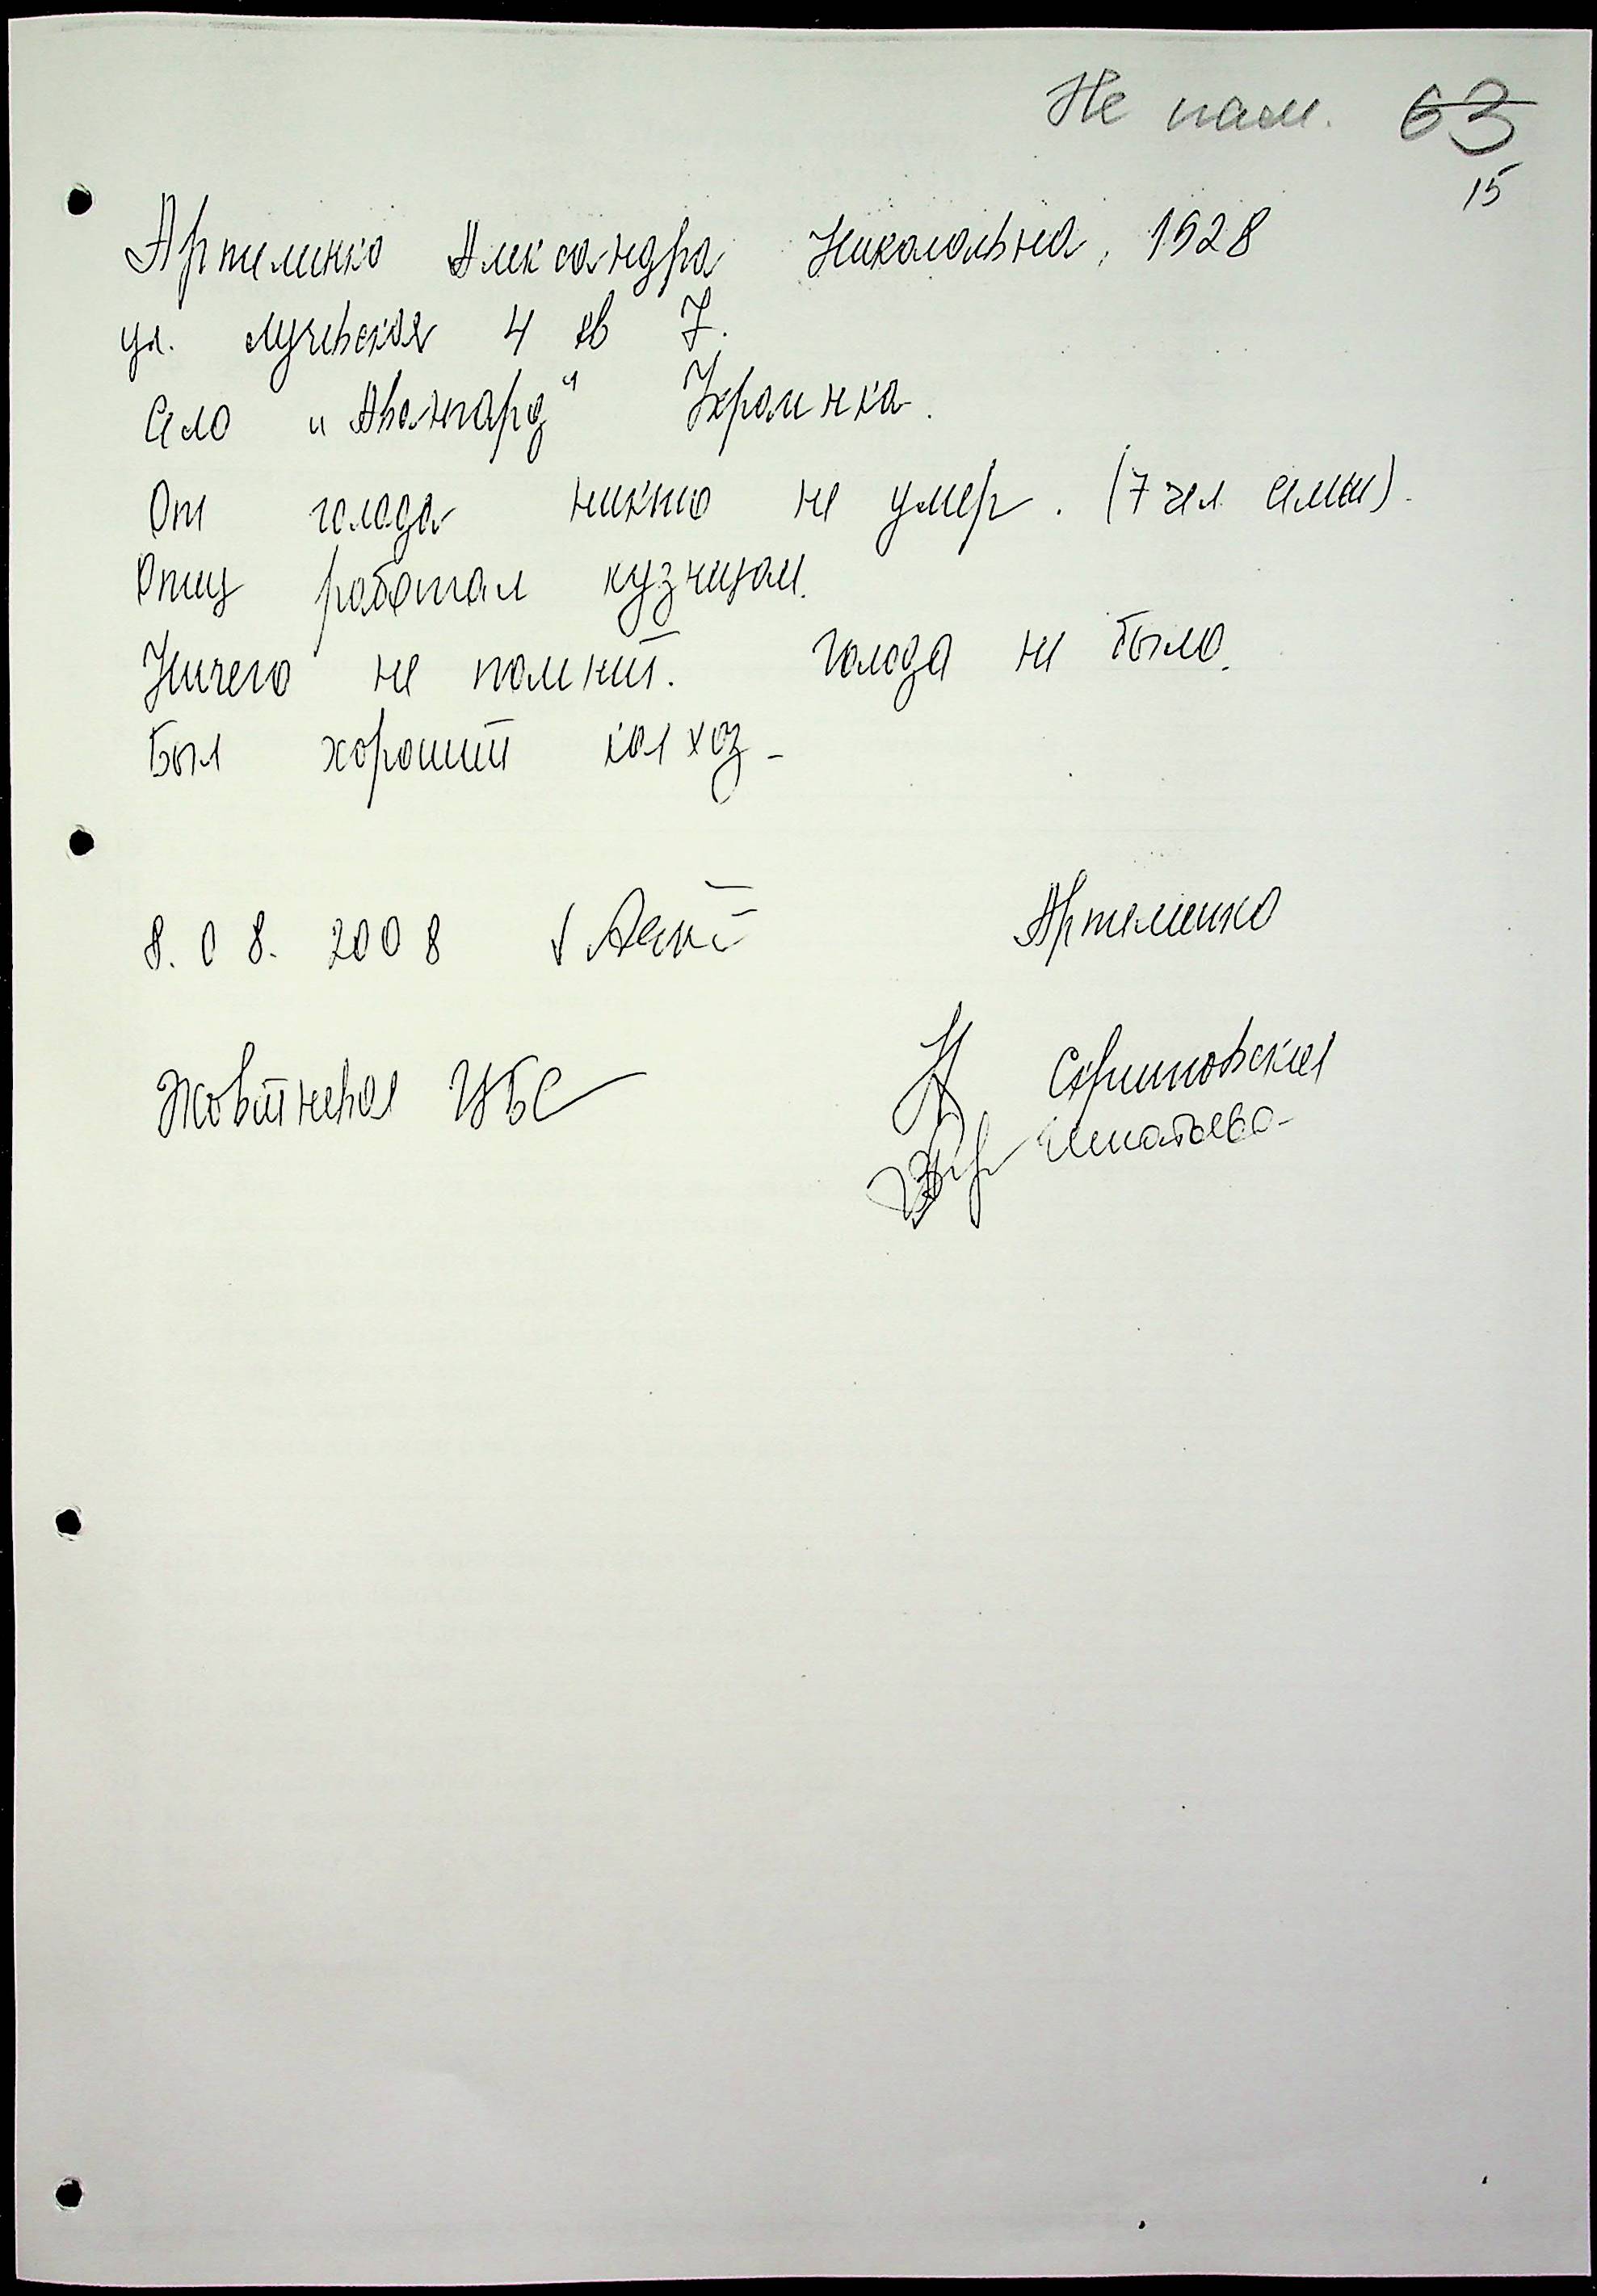 Не пам. 63
15
Артеменко Александра Николаевна, 1928
ул. Лучевская 4 кв 7.
Село "Авангард" Украинка.
От голода никто не умер. (7 чел семьи).
Отец работал кузнецом.
Ничего не помнит. Голода не было.
Был хороший колхоз.
8.08.2008 Артеменко
Жовтневая ЦБС
Игнатьева